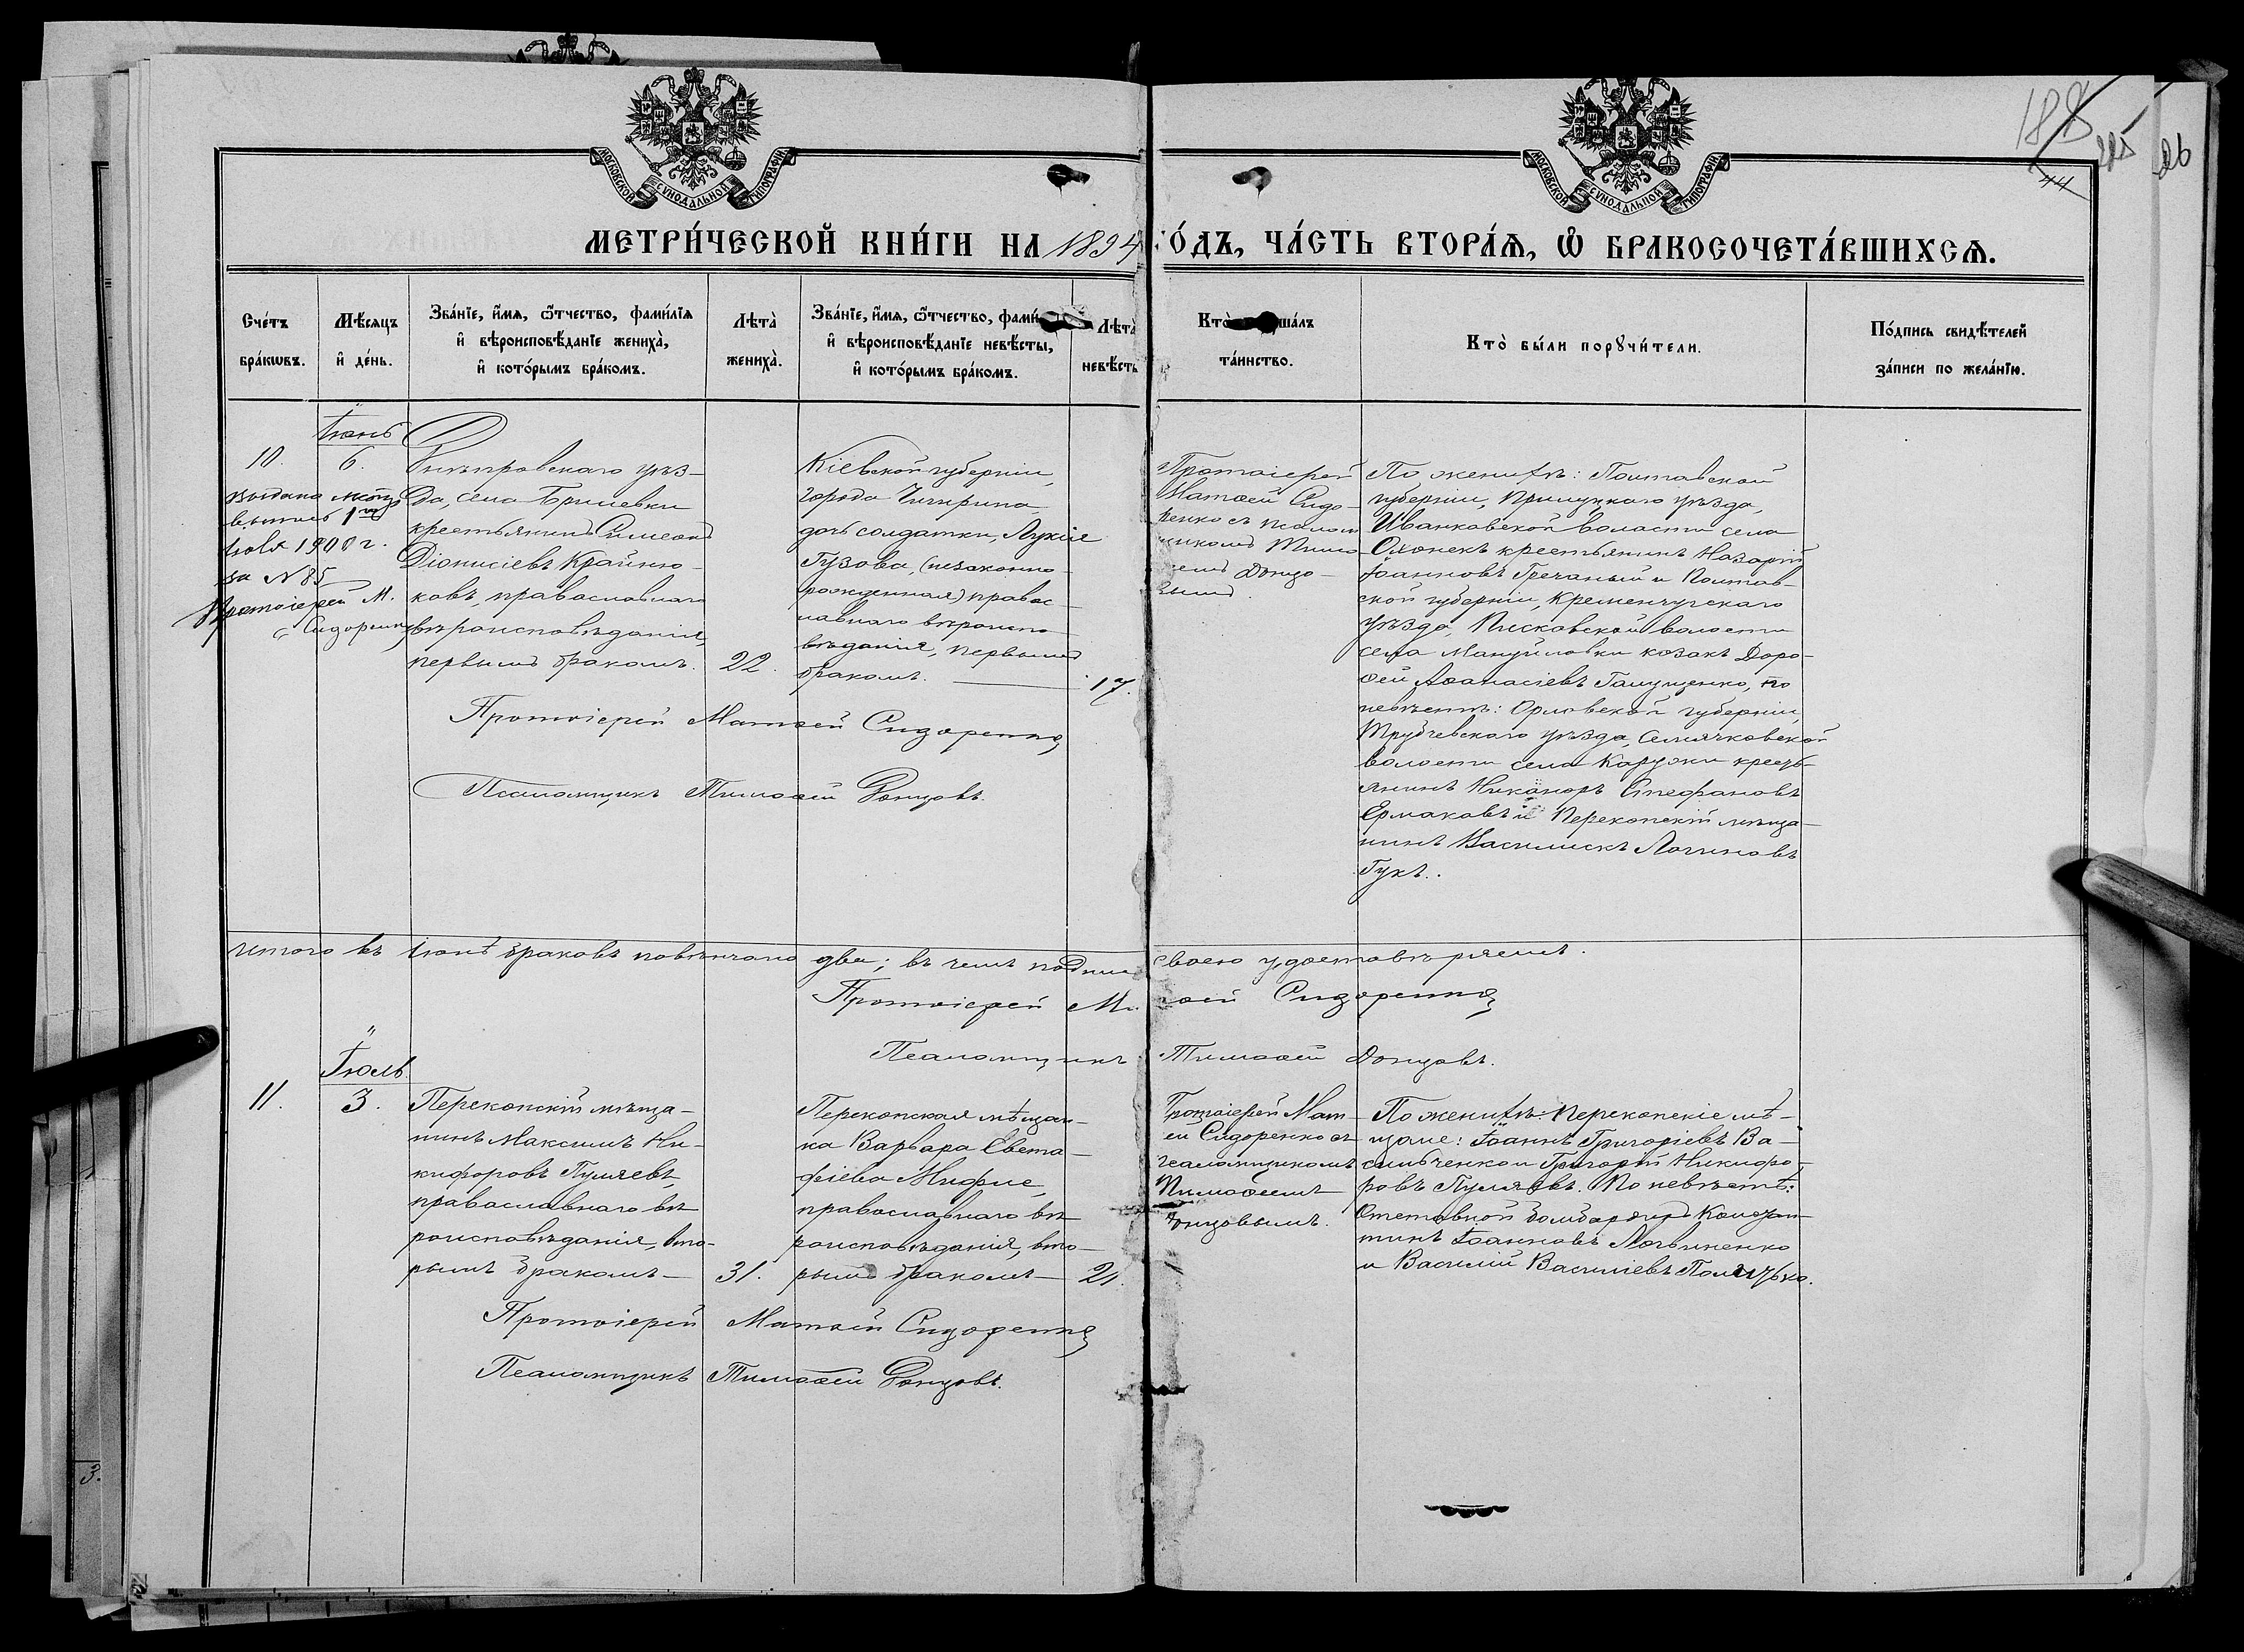 МОСКОВСКОЙ СѴНОДАЛЬНОЙ ТИПОГРАФІИ
МОСКОВСКОЙ СѴНОДАЛЬНОЙ ТИПОГРАФІИ
188
44
26
МЕТРИ́ЧЕСКОЙ КНИ́ГИ НА 1894
ГО́ДЪ, ЧА́СТЬ ВТОРА́Ѧ, Ѡ҆ БРАКОСОЧЕТА́ВШИХСѦ.
Сче́тъ
бра́кѡвъ.
Мѣ́сяцъ
и҆ де́нь.
Зва́нїе, и҆́мѧ, ѻ҆́тчество, фами́лїѧ
и҆ вѣроисповѣ́данїе жениха̀,
и҆ кото́рымъ бра́комъ.
Лѣта̀
жениха̀.
Зва́нїе, и҆́мѧ, ѻ҆́тчество, фами́
и҆ вѣроисповѣ́данїе невѣ́сты,
и҆ кото́рымъ бра́комъ.
Лѣта̀
невѣ́сты
Кто̀ шалъ
та́инство.
Кто̀ бы́ли порꙋчи́тели.
По́дпись свидѣ́телей
за́писи по жела́нїю.
Іюнь
10.
6.
выдана метр.
выпись 1го
Іюля 1900 г.
за N 85
Протоіерей М.
Сидоренко
Днѣпровскаго уѣз-
да, села Брилевки
крестьянинъ Симеонъ
Діонисіевъ Крайню-
ковъ, православнаго
вѣроисповѣданія,
первымъ бракомъ.
22.
Кіевской губерніи,
города Чигирина
дочь солдатки, Лукія
Гузова, (незаконно-
рожденная) правос-
лавнаго вѣроиспо-
вѣданія, первымъ
бракомъ.
17.
Протоіерей
Матѳей Сидо-
ренко съ псалом
щикомъ Тимо-
ѳеемъ Донцо-
вымъ.
По женихѣ: Полтавской
губерніи, Прилуцкаго уѣзда,
Иванковской волости села
крестьянинъ Назарій
Іоанновъ Гречаный и Полтав-
ской губерніи, Кременчугскаго
уѣзда, Песковской волости
села Мануйловки козакъ Доро-
ѳей Аѳанасіевъ Галущенко, по
невѣстѣ: Орловской губерніи,
Трубчевскаго уѣзда, Семячковской
волости села Карзожи кресть-
янинъ Никаноръ Стефановъ
Ермаковъ и Перекопскій мѣща-
нинъ Василискъ Логиновъ
Гукъ.
Протоіерей Матѳей Сидоренко
Псаломщикъ Тимоѳей Донцовъ.
Итого въ Іюнѣ браковъ повѣнчано два; въ чемъ подпи своею удостовѣряемъ.
Протоіерей Ма ѳей Сидоренко
Псаломщикъ Тимоѳей Донцовъ.
Іюль
11.
3.
Перекопскій мѣща-
нинъ Максимъ Ни-
кифоровъ Гуляевъ,
православнаго вѣ
роисповѣданія, вто-
рымъ бракомъ —
31.
Перекопская мѣщан-
ка Варвара Евста-
фіева Мифле,
православнаго вѣ
роисповѣданія, вто-
рымъ бракомъ —
21.
Протоіерей Матѳ-
ей Сидоренко съ
псаломщикомъ
Тимоѳеемъ
Донцовымъ.
По женихѣ: Перекопскіе мѣ-
щане: Іоаннъ Григоріевъ Ва-
сильченко и Григорій Никифо-
ровъ Гуляевъ. По невѣстѣ:
Отставной бомбардиръ Констан-
тинъ Іоанновъ Логвиненко
и Василій Васильевъ
Протоіерей Матѳей Сидоренко
Псаломщикъ Тимоѳей Донцовъ.
3.